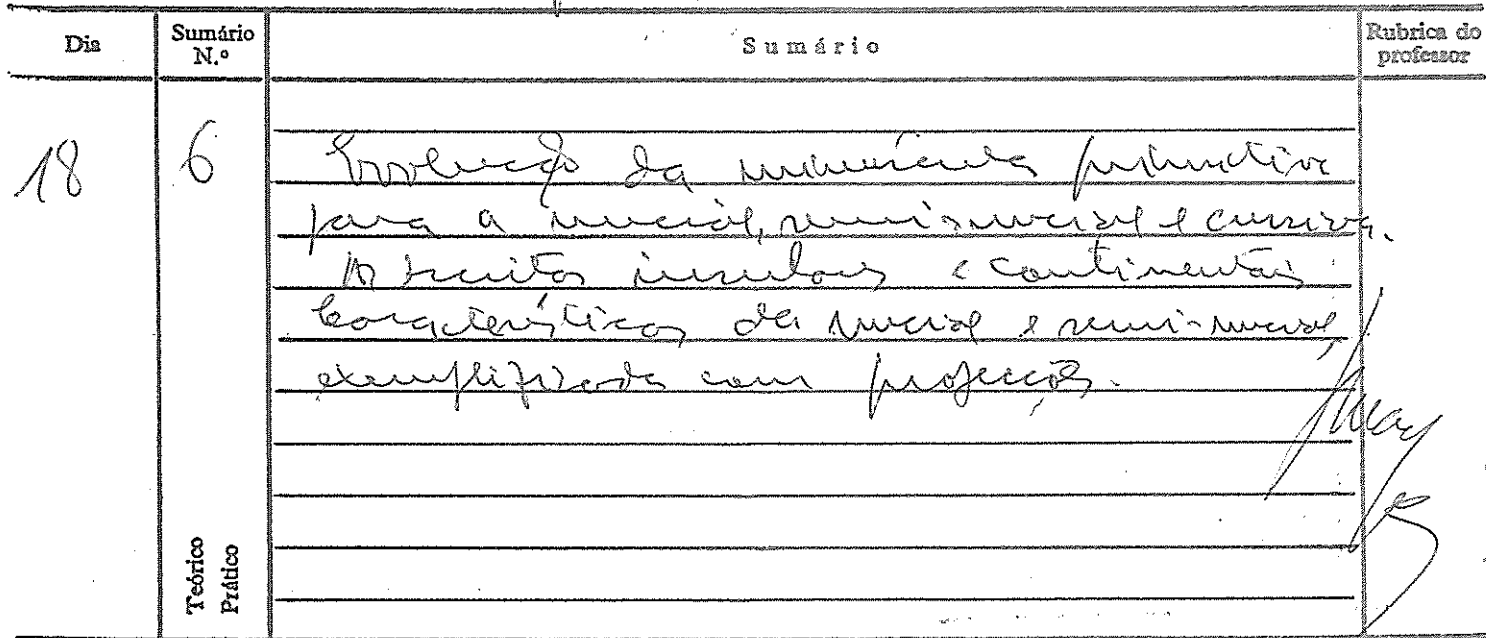 Dia
Sumário N.º
Sumário
Rubrica do professor
18
6
Evolução da minúscula primitiva
para a uncial, semi-uncial e cursiva.
As escritas insulares e continentais
Características da uncial e semi-uncial,
exemplificada com projecções.
Teórico
Prático